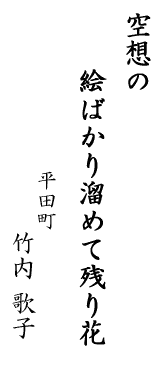 空想の
絵ばかり溜めて残り花
平田町
竹内歌子